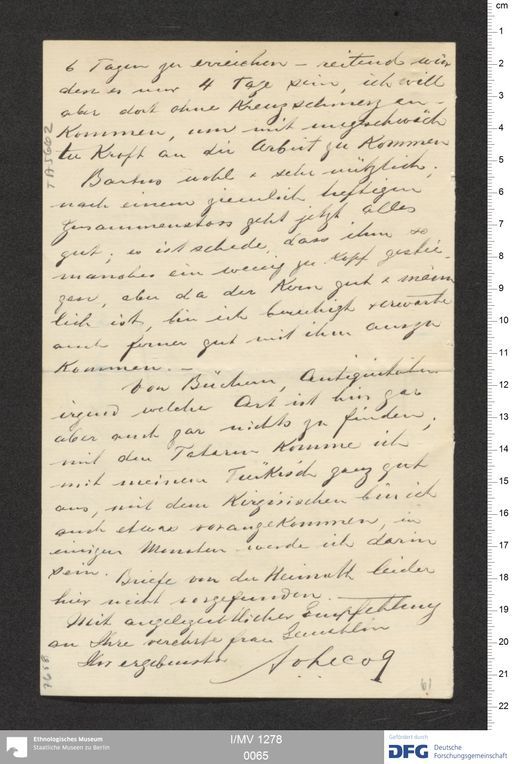 6 Tagen zu erreichen – reitend wür
den es nur 4 Tage sein, ich will
aber dort ohne Kreuzschmerz an-
kommen, um mit ungeschwäch
ter Kraft an die Arbeit zu kommen
Bartus wohl & sehr nützlich;
nach einem ziemlich heftigen
Zusammenstoss geht jetzt alles
gut; es ist schade, dass ihm so
manches ein wenig zu Kopf gestie-
gen, aber da der Kern gut & männ
lich ist, bin ich beruhigt & erwarte
auch ferner gut mit ihm auszu
kommen. –
Von Büchern, Antiquitäten
irgend welcher Art ist hier gar
aber auch gar nichts zu finden;
mit den Tataren komme ich
mit meinem Türkisch ganz gut
aus, mit dem Kirgisischen bin ich
auch etwas vorangekommen, in
einigen Monaten werde ich darin
sein. Briefe von der Heimath leider
hier nicht vorgefunden.
Mit angelegentlicher Empfehlung
an Ihre verehrte Frau Gemahlin
Ihr ergebenster
A v Lecoq
TA 5662
61
Ethnologisches Museum
Staatliche Museen zu Berlin
I/MV 1278
0065
Gefördert durch
DFG Deutsche
Forschungsgemeinschaft
cm
1
2
3
4
5
6
7
8
9
10
11
12
13
14
15
16
17
18
19
20
21
22